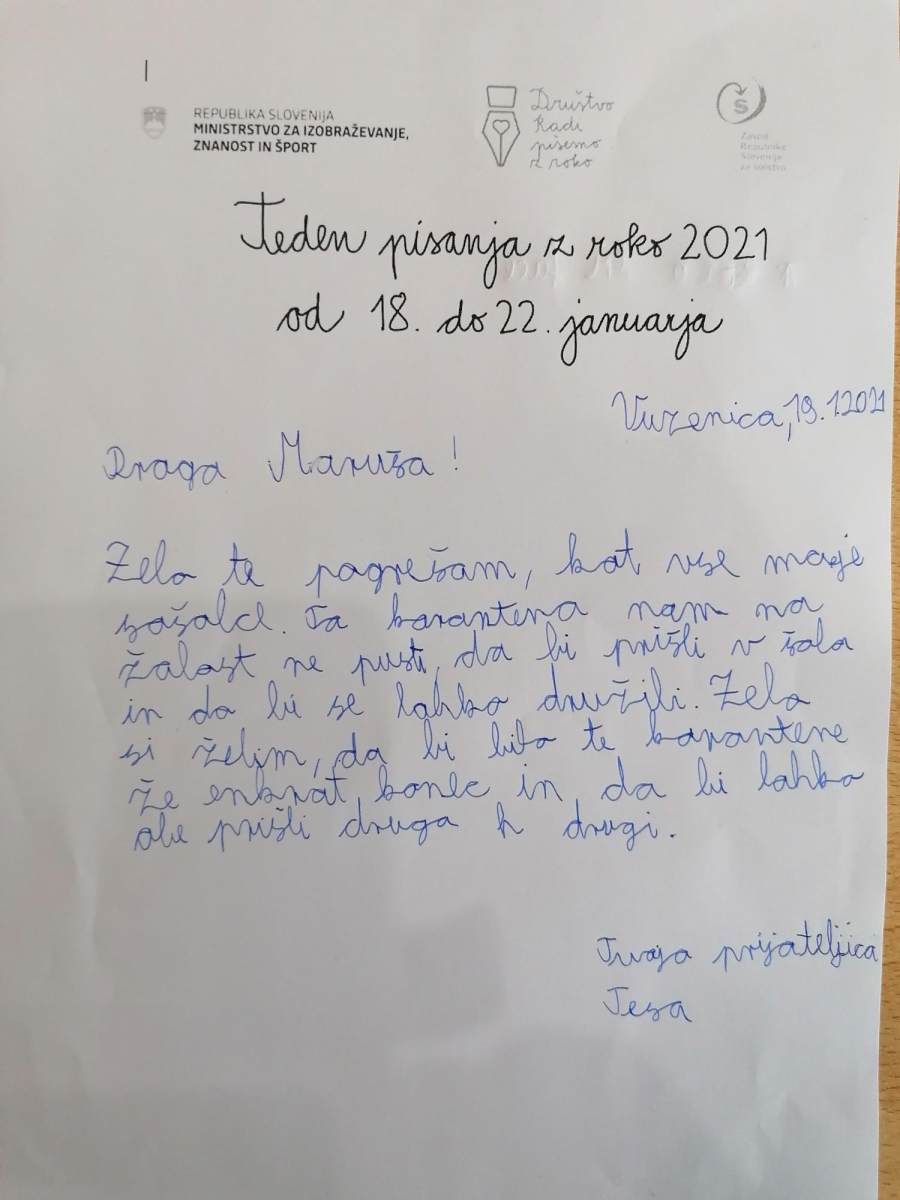 REPUBLIKA SLOVENIJA
MINISTRSTVO ZA IZOBRAŽEVANJE,
ZNANOST IN ŠPORT
Društvo
Radi
pišemo
z roko
Zavod
Republike
Slovenije
za šolstvo
Teden pisanja z roko 2021
od 18. do 22. januarja
Vuzenica, 19.1.2021
Draga Maruša!
Zelo te pogrešam, kot vse moje
sošolce. Ta karantena nam na
žalost ne pusti, da bi prišli v šolo
in da bi se lahko družili. Zelo
si želim, da bi bilo te karantene
že enkrat konec in, da bi lahko
obe prišli druga k drugi.
Tvoja prijateljica
Tesa